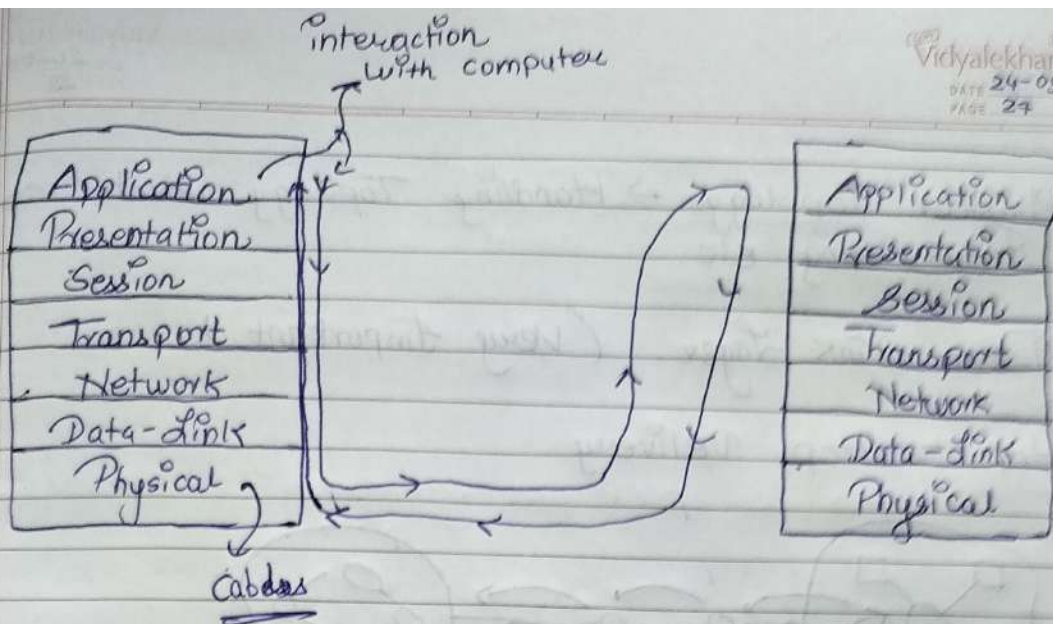 interaction
with computer
Vidyalekhan
DATE 24-09
PAGE 27
Application
Presentation
Session
Transport
Network
Data-Link
Physical
Cables
Application
Presentation
Session
Transport
Network
Data-Link
Physical